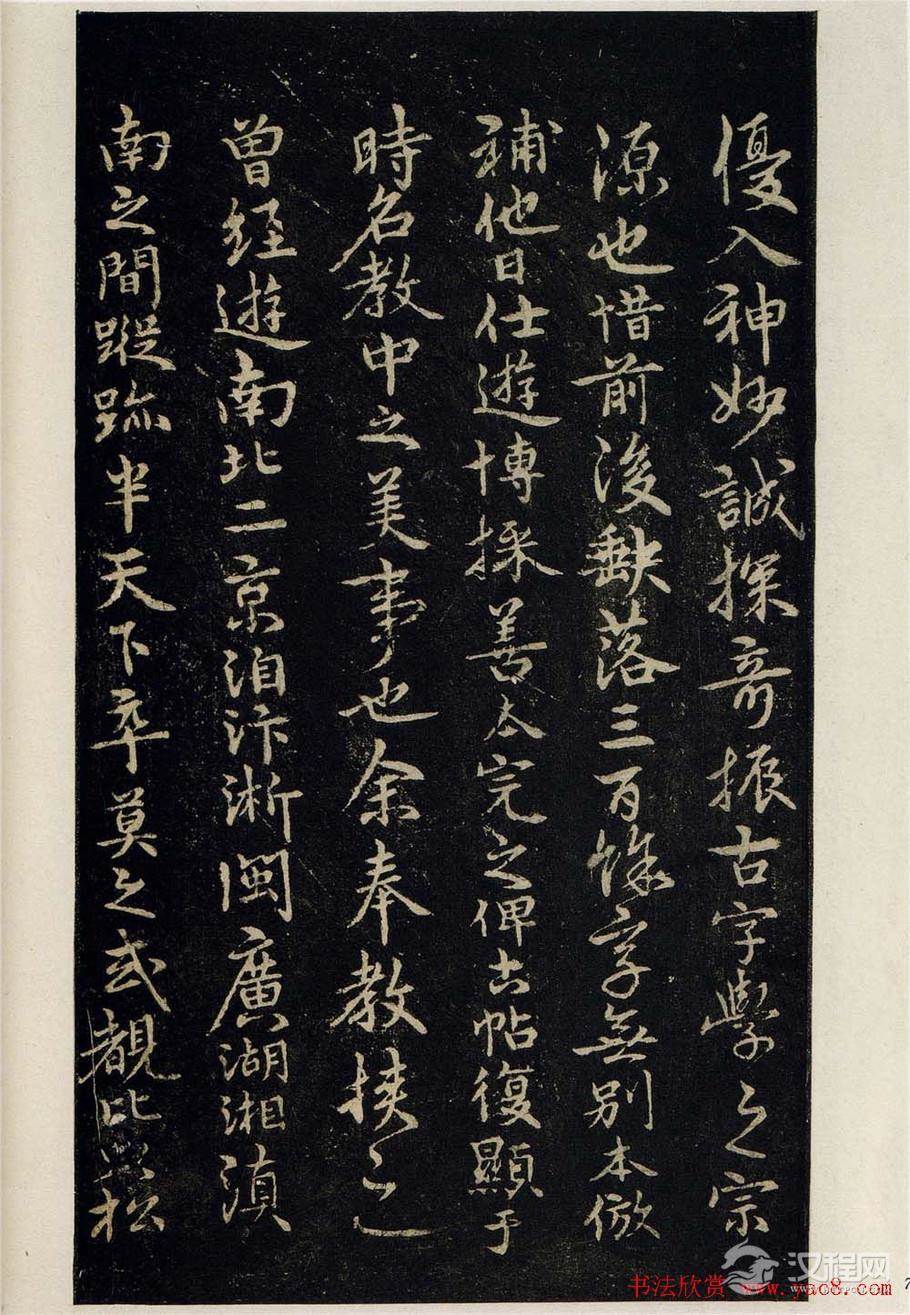 優入神妙誠探奇振古字學之宗
源也惜前後缺落三百餘字無別本倣
補他日仕遊博採善本完之俾古帖復顯于
時名教中之美事也余奉教挟之
曾經遊南北二京洎汴淅閩廣湖湘滇
南之間蹤跡半天下卒莫之或覩比照松
汉程网
HTTPCN.COM
书法欣赏 www.yac8.com
7